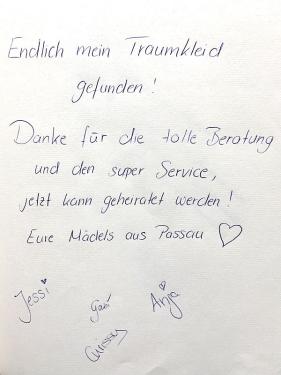 Endlich mein Traumkleid
gefunden!
Danke für die tolle Beratung
und den super Service,
jetzt kann geheiratet werden!
Eure Mädels aus Passau ♡
Jessi
Anja